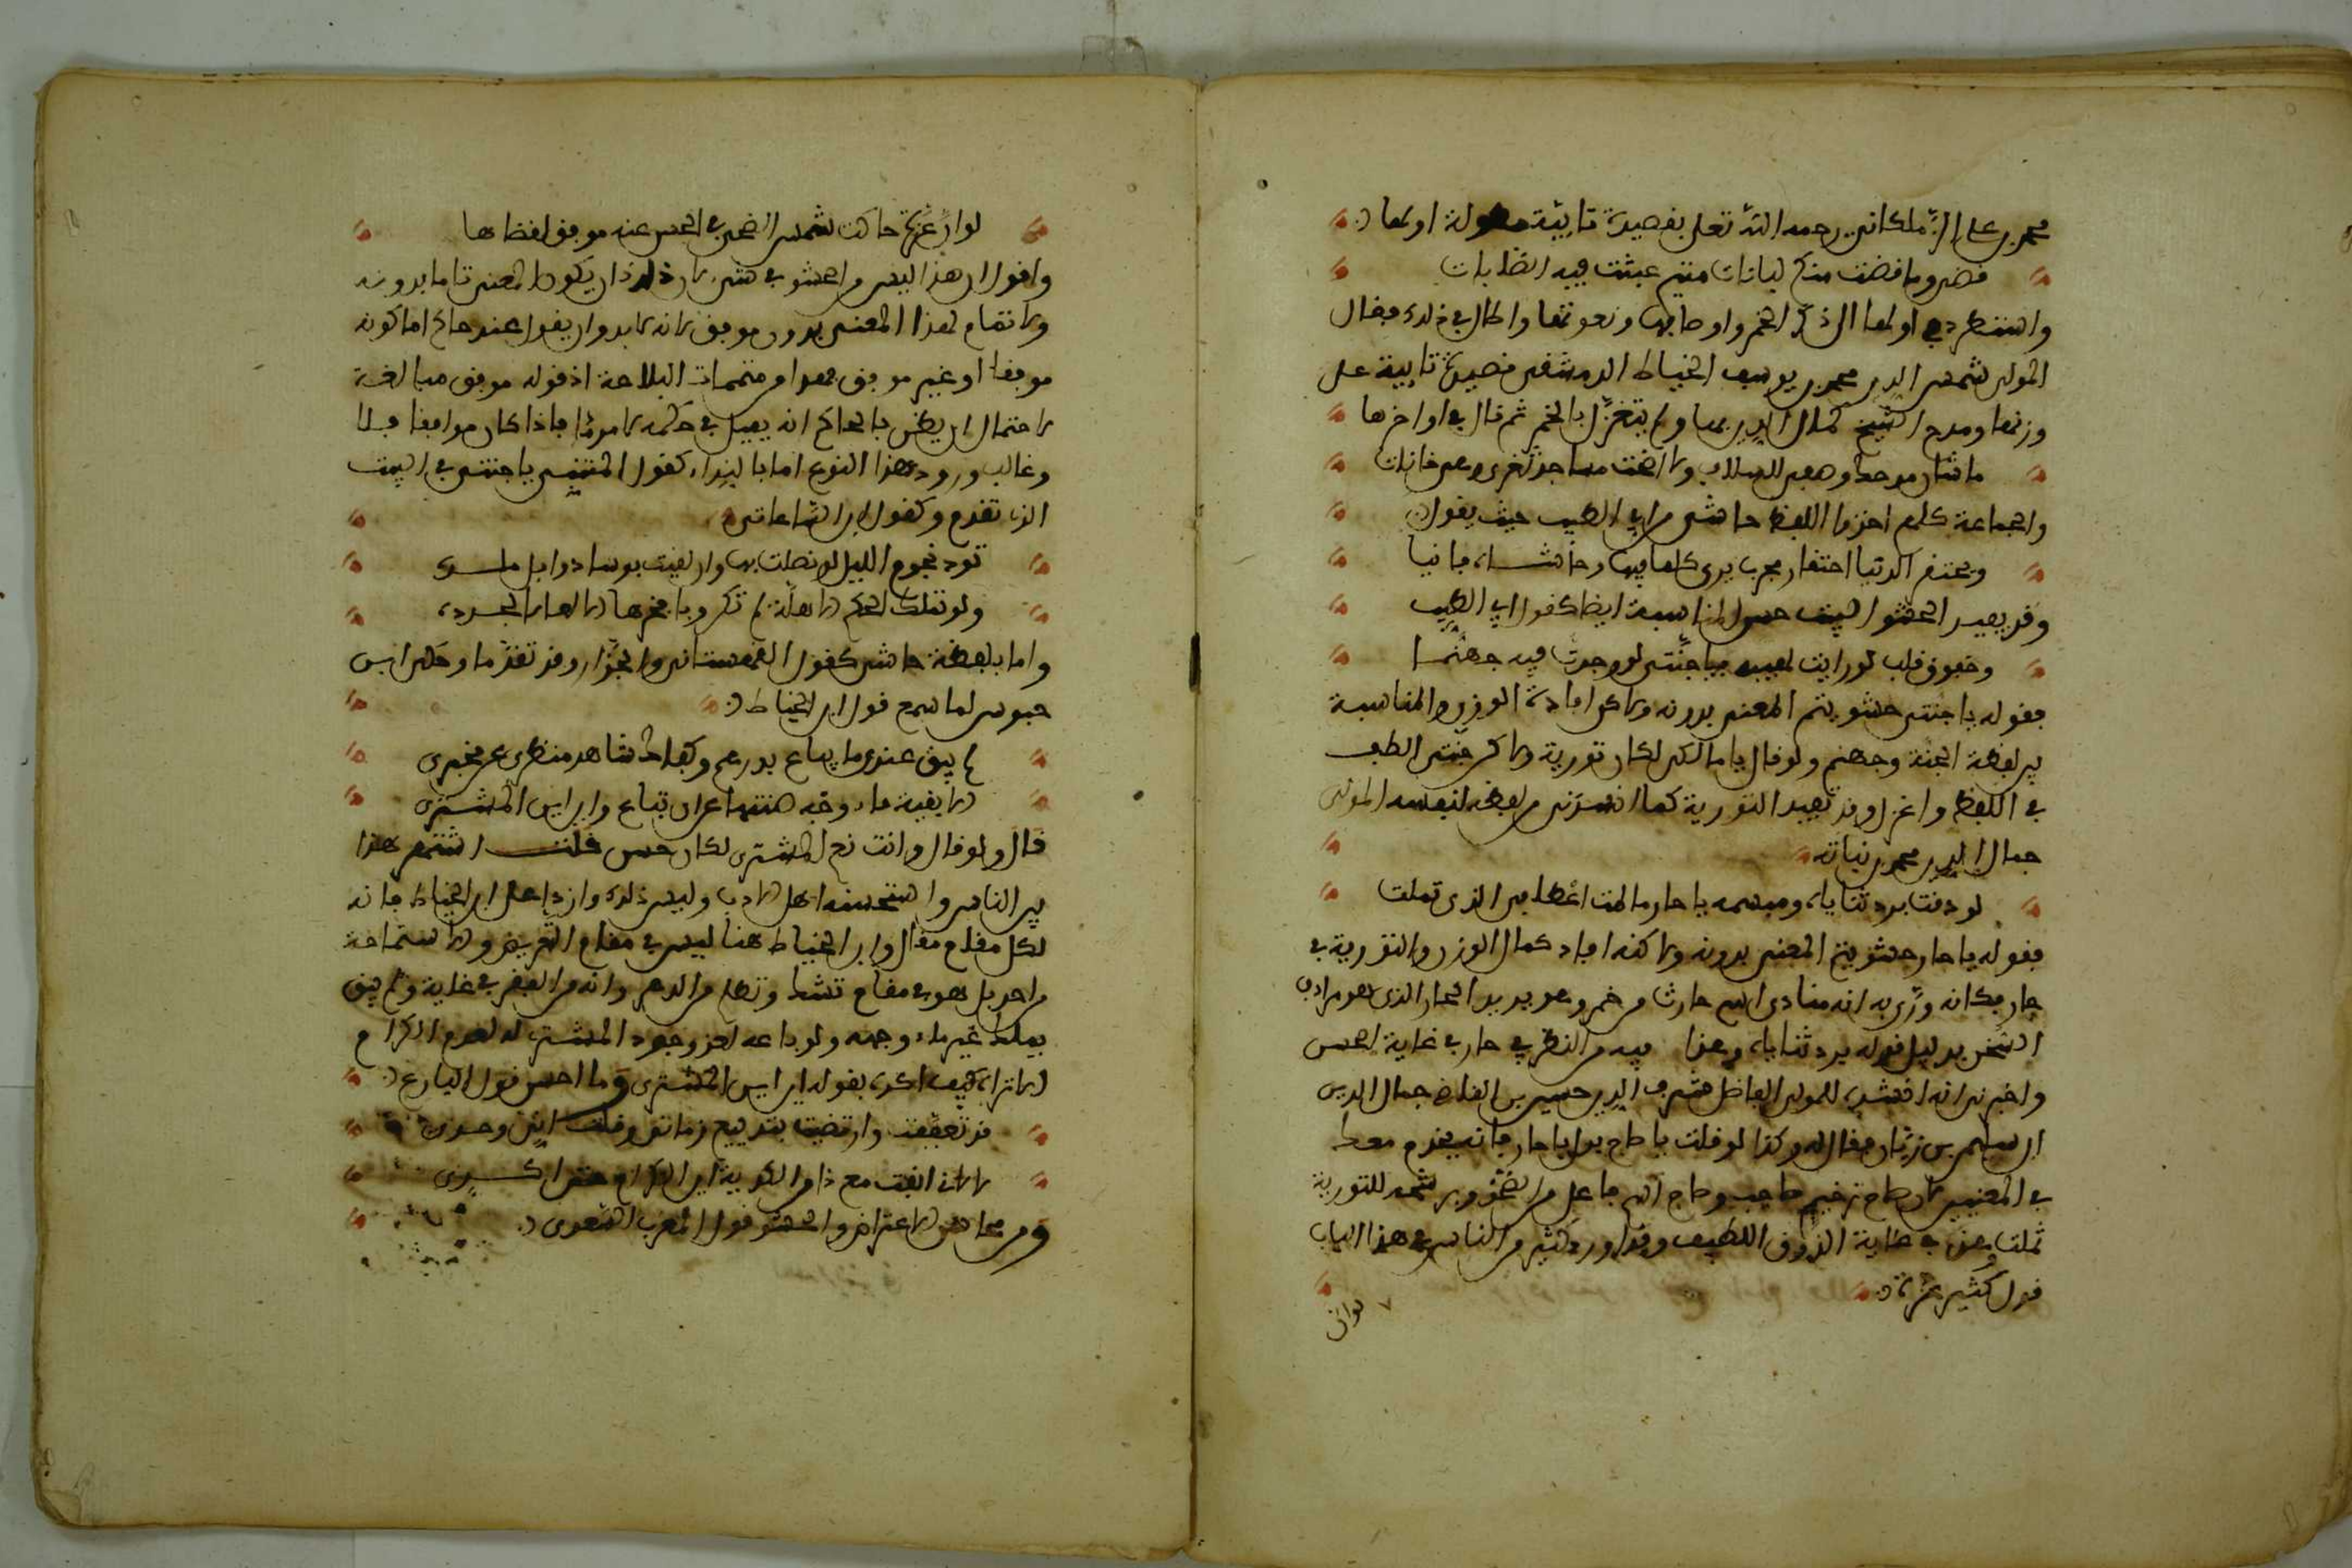 محمد بن علي الزملكاني رحمه الله تعلى بقصيدة تائية مطولة اولها
قضى وما قضيت منكم لبانات متيم عبثت فيه الصبابات
واستطرد في اولها الى ذكر الخمر واوصافها ونعوتها واطال في ذلك فقال
المولى شمس الدين محمد بن يوسف الخياط الدمشقي قصيدة تايية على
وزنها ومدح الشيخ كمال الدين بها ولم يتغزل بالخمر ثم قال في اواخرها
ما شان مدحي وهبي للسلاب ولا اضحت مساجد شعري وهي حانات
والجماعة كلهم اخذوا اللفظ حاشى من ابي الطيب حيث يقول
ويحتقر الدنيا احتقار مجرب يرى كلما فيها وحاشاه فانيا
وقد يفيد الحشو البيت حسن المناسبة ايضا كقول ابي الطيب
وخفوق قلب لو رايت لهيبه يا جنتي لوجدت فيه جهنما
فقوله يا جنتي حشو يتم المعنى بدونه ولاكن افادة الوزن والمناسبة
بين لفظة الجنة وجهنم ولو قال يا مالكي لكان تورية ولاكن جنتي الطف
في اللفظ واغزل وقد يفيد التورية كما انشدني من لفظه لنفسه المولى
جمال الدين محمد بن نباتة
لو ذقت برد ثناياه ومبسمه يا حار ما لمت اعطافي الذي ثملت
فقوله يا حار حشو يتم المعنى بدونه ولاكنه افاد كمال الوزن والتورية في
حار فكانه ورى به انه منادى اسم حارث مرخم وهو يريد الحار الذي هو مرادف
السخن بدليل قوله برد ثناياه وهذا فيه من النظر في حار في غاية الحسن
واخبرني انه انشده للمولى الفاضل شرف الدين حسين بن القاضي جمال الدين
ابن سليمن بن ريان فقال له وكذا لو قلت يا صاح بدل يا حار فانه يخدم معك
في المعنيين لان صاح ترخيم صاحب وصاح اسم فاعل من الصحو وبرشحه للتورية
ثملت وهذا في غاية الذوق اللطيف وقد اورد كثير من الناس في هذا الباب
قول كثير عزة
لوان
لو ان عزة حاكمت شمس الضحى في الحسن عند موفق لقضى لها
واقول ان هذا ليس من الحشو في شيء لان ذلك ذان يكون المعنى تاما بدونه
ولا تمام لهذا المعنى بدون موفق لانه لا بد وان يقول عند حاكم اما كونه
موفقا او غير موفق فهذا من متممات البلاغة اذ قوله موفق مبالغة
لاحتمال ان يظن بالحاكم انه يميل في حكمه لامر ما فاذا كان موافقا فلا
وغالب ورود هذا النوع اما بالنداء كقول المتنبي يا جنتي في البيت
الذي تقدم وكقول ابن الساعاتي
تود نجوم الليل لو نصلت بها وان لقيت بوسا ذوابل ملس
ولو تملك الحكم الاهلة لم تكن وبا فخرها الا لها الجرده
واما بلفظة حاشى كقول القهستاني والجزار وقد تقدما وحكى ابن
حبوس لما سمع قول ابن الخياط
لم يبق عندي ما يباع بدرهم وكفاك شاهد منظري عن مخبري
الا بقية ماء وجه صنتها عن ان تباع واين اين المشتري
قال ولو قال وانت نعم المشتري لكان احسن قلت اشتهر هذا
بين الناس واستحسنه اهل الادب وليس ذلك وارد على ابن الخياط فانه
لكل مقام مقال وابن الخياط هنا ليس في مقام التعريض والاستماحة
من احد بل هو في مقام تشك وتظلم من الدهر وانه من الفقر في غاية ولم يبق
يملك غير ماء وجهه ولو باعه لعز وجود المشتري له لعدم الكرام
الا تراه كيف اكد بقوله اين اين المشتري وما احسن قول البارع
قد تعففت وارتضيت بتدبيع زماني وقلت اني وحدي
لا لاني انفت مع ذا من الكدية اين الكرام حتى اكدي
ومن محاسن الاعتراض والحشو قول المعذب الشعوي